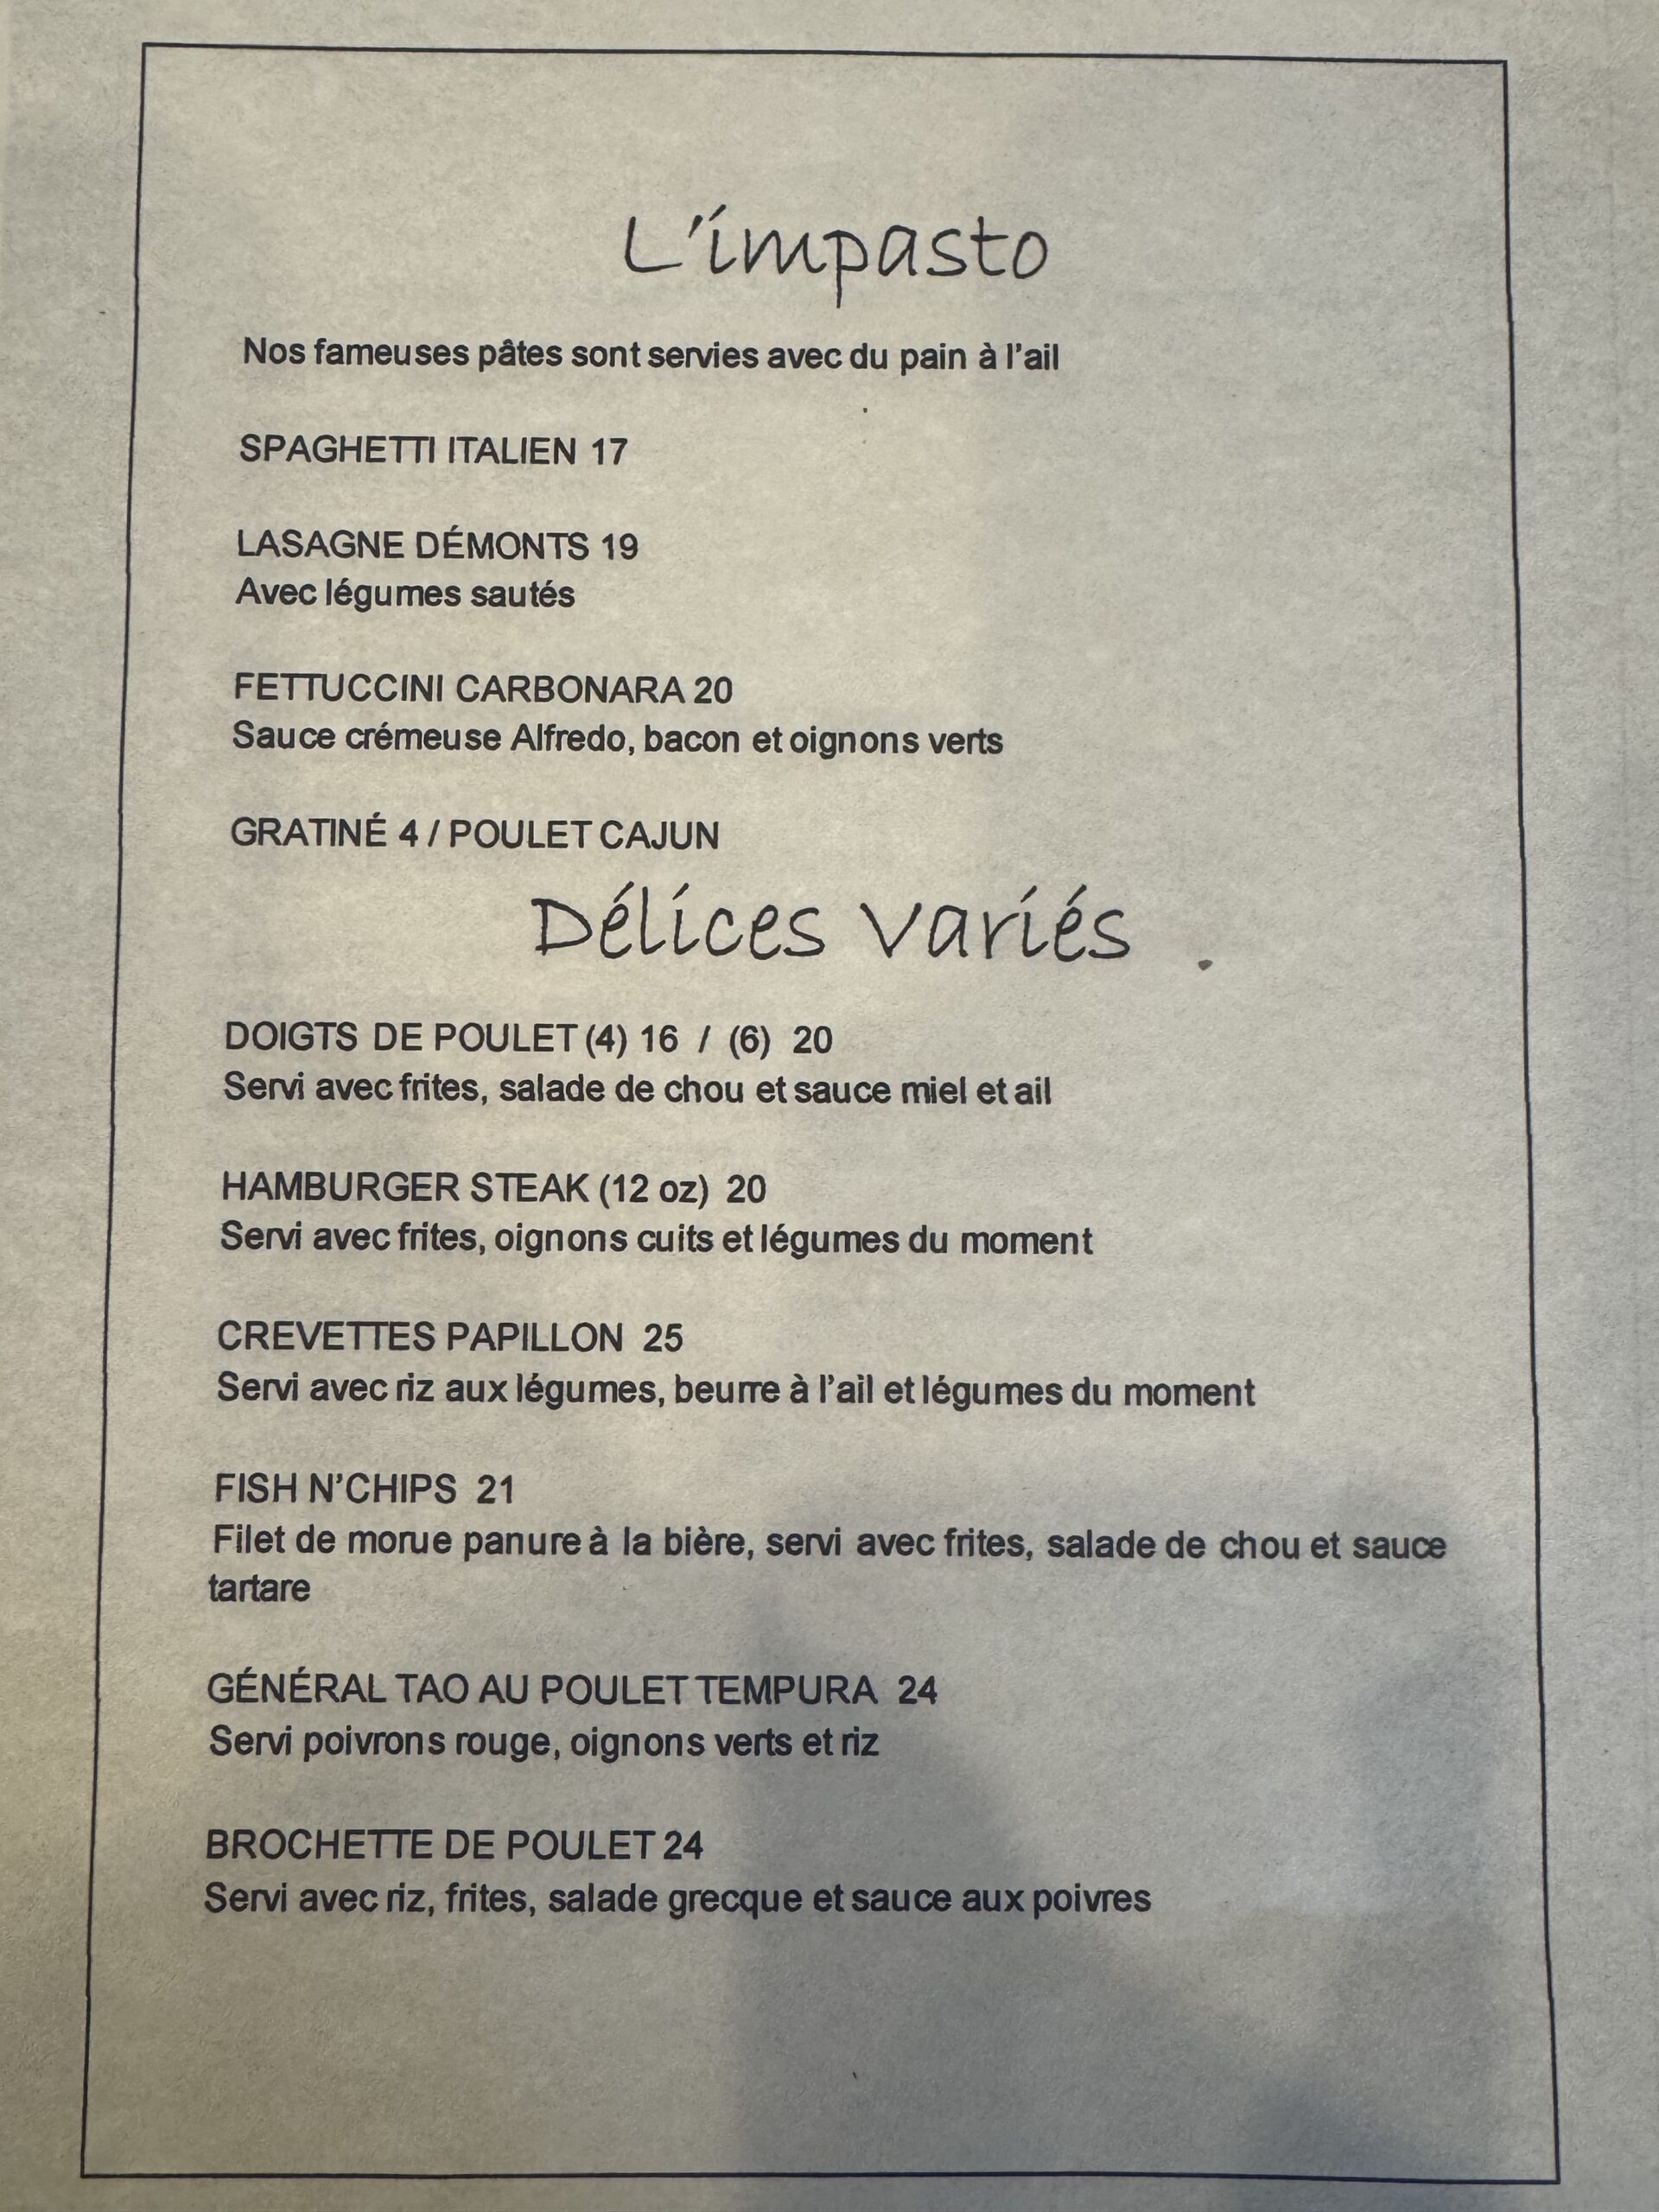 L'impasto
Nos fameuses pâtes sont servies avec du pain à l'ail
SPAGHETTI ITALIEN 17
LASAGNE DÉMONTS 19
Avec légumes sautés
FETTUCCINI CARBONARA 20
Sauce crémeuse Alfredo, bacon et oignons verts
GRATINÉ 4 / POULET CAJUN
Délices Variés
DOIGTS DE POULET (4) 16 / (6) 20
Servi avec frites, salade de chou et sauce miel et ail
HAMBURGER STEAK (12 oz) 20
Servi avec frites, oignons cuits et légumes du moment
CREVETTES PAPILLON 25
Servi avec riz aux légumes, beurre à l'ail et légumes du moment
FISH N'CHIPS 21
Filet de morue panure à la bière, servi avec frites, salade de chou et sauce
tartare
GÉNÉRAL TAO AU POULET TEMPURA 24
Servi poivrons rouge, oignons verts et riz
BROCHETTE DE POULET 24
Servi avec riz, frites, salade grecque et sauce aux poivres